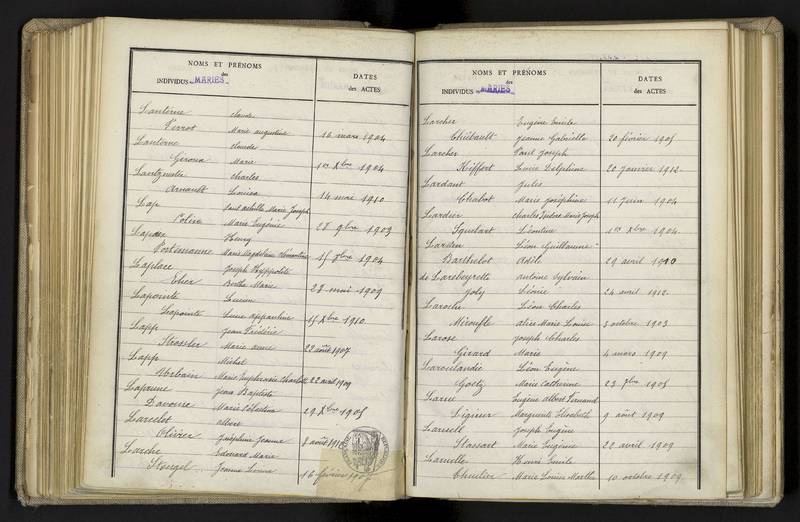 NOMS ET PRÉNOMS
des
INDIVIDUS MARIÉS
DATES
des ACTES
Lanterne Claude
Perrot Marie Augustine 16 mars 1904
Lanterne Claude
Marie 1er Xbre 1904
Charles
Arnault Louisa 14 mai 1910
Lap Marie Joseph
Marie Eugénie 28 9bre 1903
Henry
Marie Magdeleine 1904
Laplace Joseph Hyppolite
Berthe Marie 28 mai 1909
Lapointe
Lapointe 15 Xbre 1910
Lapp Jean Frédéric
Strossler Marie Anne 22 août 1907
Lapp Michel
Urbain Marie Euphrasie Charlotte 22 avril 1909
Jean Baptiste
Davoine Marie Célestine 29 Xbre 1905
Larcelot Albert
Olivier Joséphine Jeanne 8 août
Larche Edouard Marie
Stengel Jeanne 16 février
NOMS ET PRÉNOMS
des
INDIVIDUS MARIÉS
DATES
des ACTES
Larcher Eugène Emile
Thiébault Jeanne Gabrielle 20 février 1905
Larcher Paul Joseph
Hiffert Lucie Delphine 20 janvier 1912
Lardant Jules
Chabot Marie Joséphine 11 juin 1904
Lardier Charles Marie Joseph
Squelart Léontine 1er Xbre 1904
Larden Léon Guillaume
Barthelot Adèle 29 avril 1910
de Larebeyrette Antoine Sylvain
Joly Léonie 24 avril 1912
Laroche Léon Charles
Alice Marie Louise 3 octobre 1903
Larose Joseph Charles
Girard Marie 4 mars 1909
Laroulandie Léon Eugène
Goetz Marie Catherine 23 7bre 1905
Larue Eugène Albert Fernand
Ligier Marguerite Elisabeth 9 août 1909
Joseph Eugène
Stassart Marie Eugénie 22 avril 1909
Larvelle Henri Emile
Marie Louise Marthe 10 octobre 1909